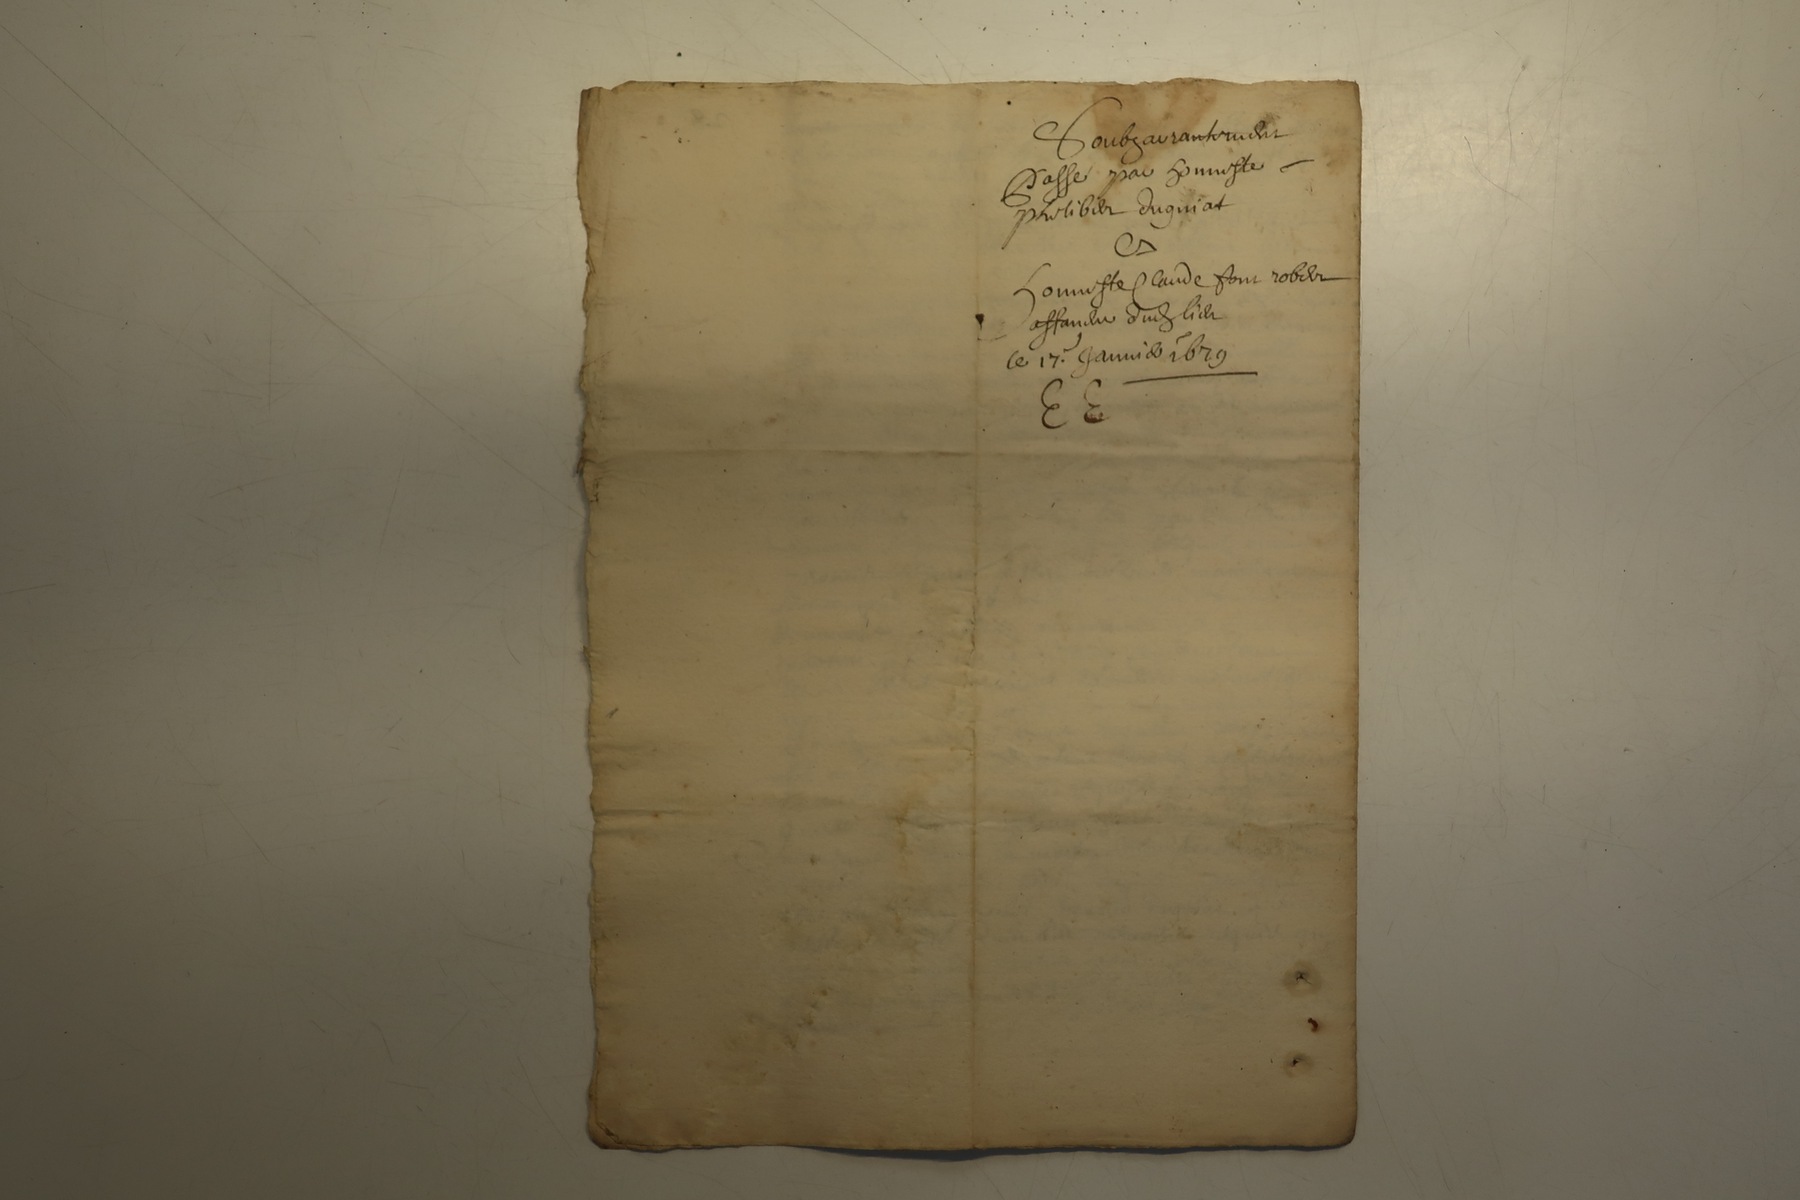 Soubzacransement
Passe par honneste
philiber duguiat
Et
honneste Claude feu rober
assandu dudz lieu
le 17e Janvier 1679
E E